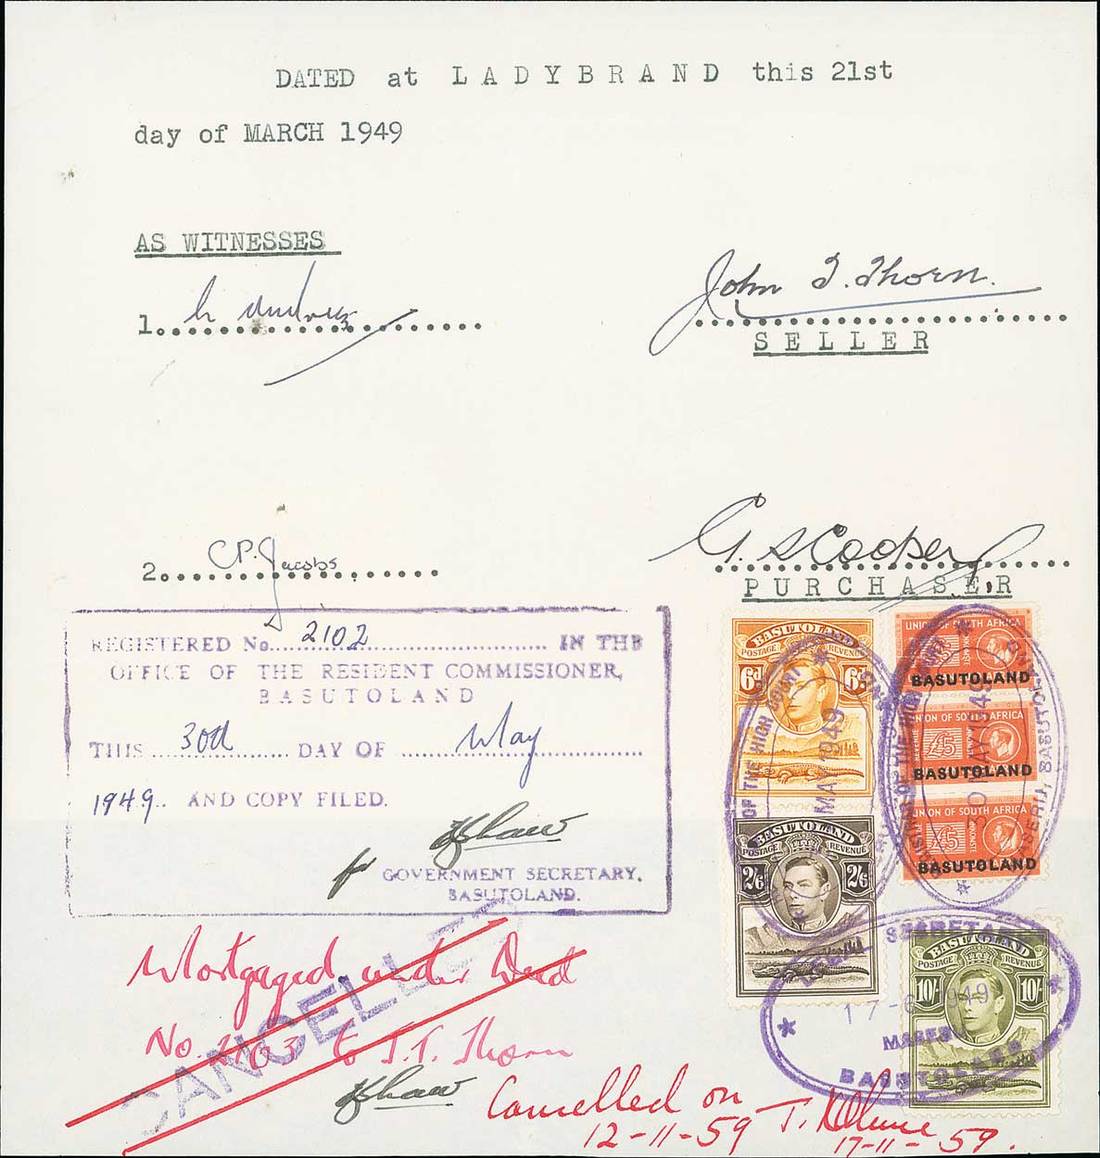 DATED at LADYBRAND this 21st
day of MARCH 1949
AS WITNESSES
1.
John T. Thorn.
SELLER
2. C.P. Jacobs
G. S. Cooper
PURCHASER
REGISTERED No. 2102 IN THE
OFFICE OF THE RESIDENT COMMISSIONER,
BASUTOLAND
THIS 30th DAY OF May
1949. AND COPY FILED.
GOVERNMENT SECRETARY,
BASUTOLAND.
BASUTOLAND
POSTAGE REVENUE
6d 6d
BASUTOLAND
POSTAGE REVENUE
2/6 2/6
UNION OF SOUTH AFRICA
BASUTOLAND
UNION OF SOUTH AFRICA
£5
BASUTOLAND
UNION OF SOUTH AFRICA
£5
BASUTOLAND
OF THE HIGH COURT
MAY 1949
30 MAY 1949
BASUTOLAND
POSTAGE REVENUE
10/- 10/-
SECRETARY
1949
MASERU
BASUTOLAND
Mortgaged under Deed
No. 2103 to J.T. Thorn
CANCELLED
Cancelled on
12-11-59
17-11-59.